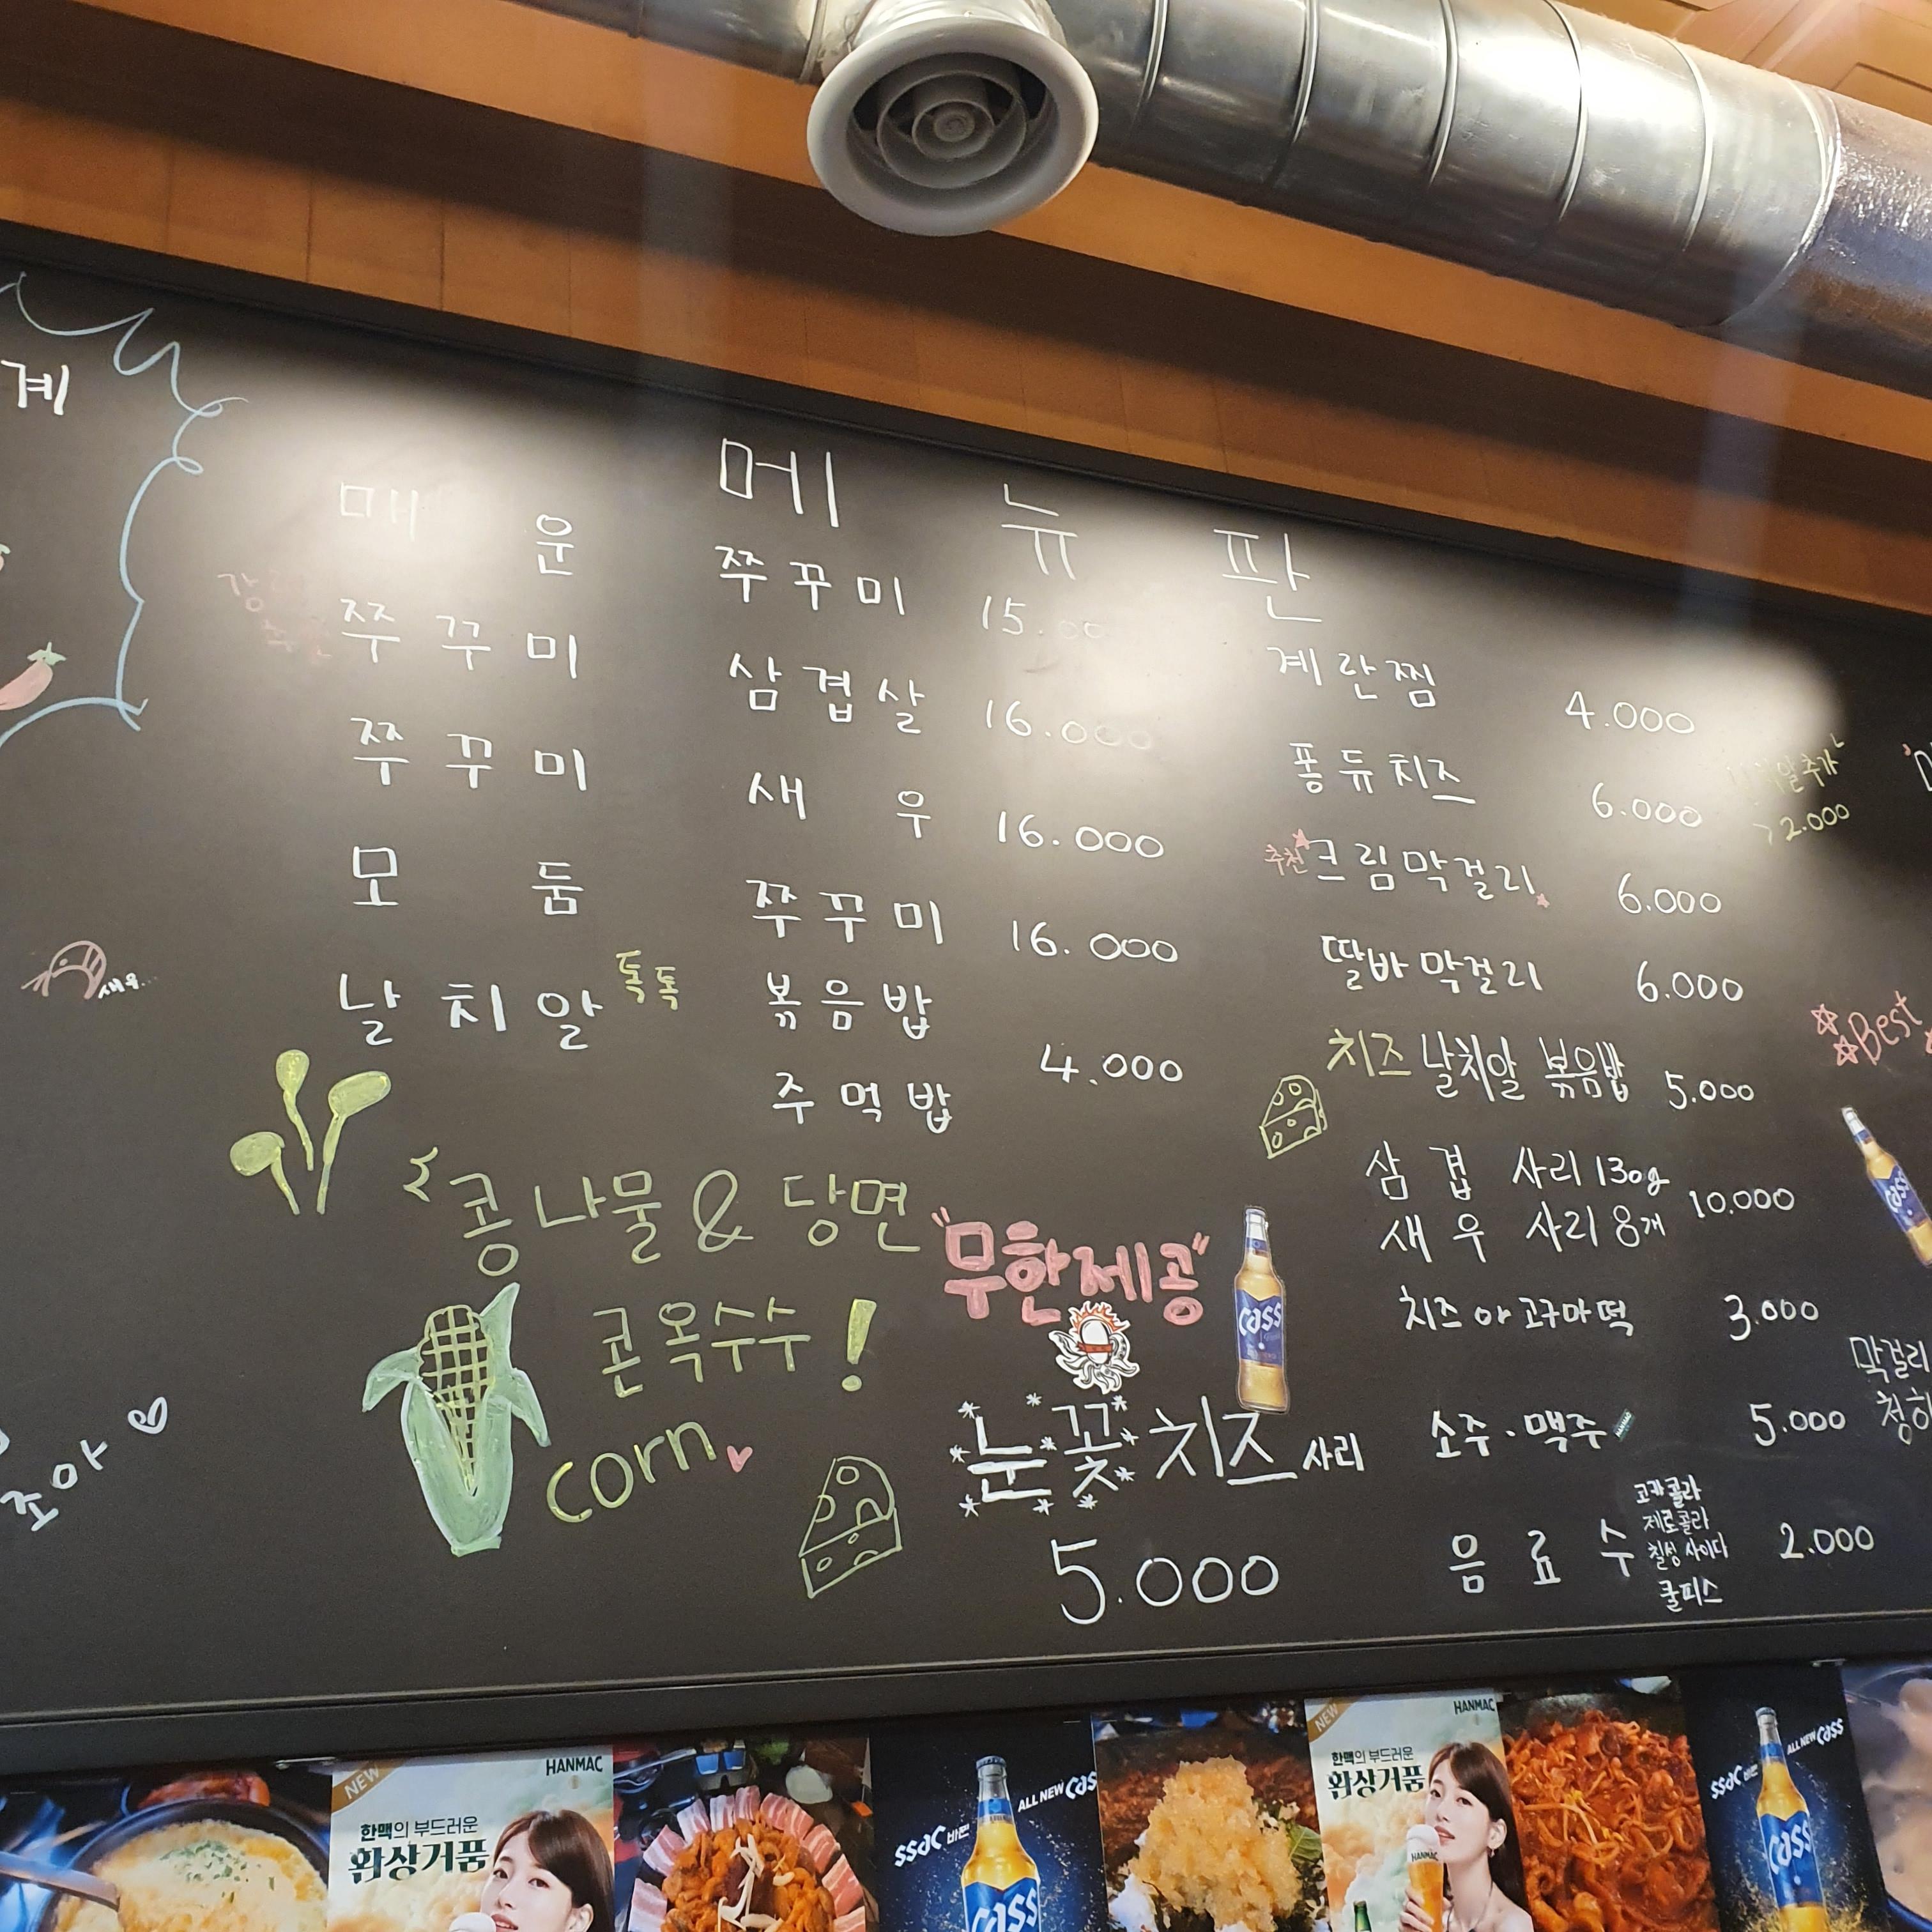 계
메 뉴 판
매 운 쭈꾸미 15.00
강력
쭈꾸미 삼겹살 16.000
쭈꾸미 새우 16.000
모 둠 쭈꾸미 16.000
날치알 톡톡 볶음밥
주먹밥 4.000
새우...
조아
콩나물 & 당면
콘옥수수!
corn
"무한제공"
눈꽃치즈 사리
5.000
계란찜 4.000
퐁듀치즈 6.000
알추가
2.000
추천 크림막걸리 6.000
딸바막걸리 6.000
치즈 날치알 볶음밥 5.000
삼겹 사리 130g
새우 사리 8개 10.000
치즈아고구마떡 3.000
소주·맥주 5.000
음료수 코카콜라 2.000
제로콜라
칠성사이다
쿨피스
Best
막걸리
청하
Cass
Cass
NEW
HANMAC
한맥의 부드러운
환상거품
ssac 바뀐
ALL NEW Cass
Cass
NEW
HANMAC
한맥의 부드러운
환상거품
HANMAC
ssac 바뀐
ALL NEW Cass
Cass